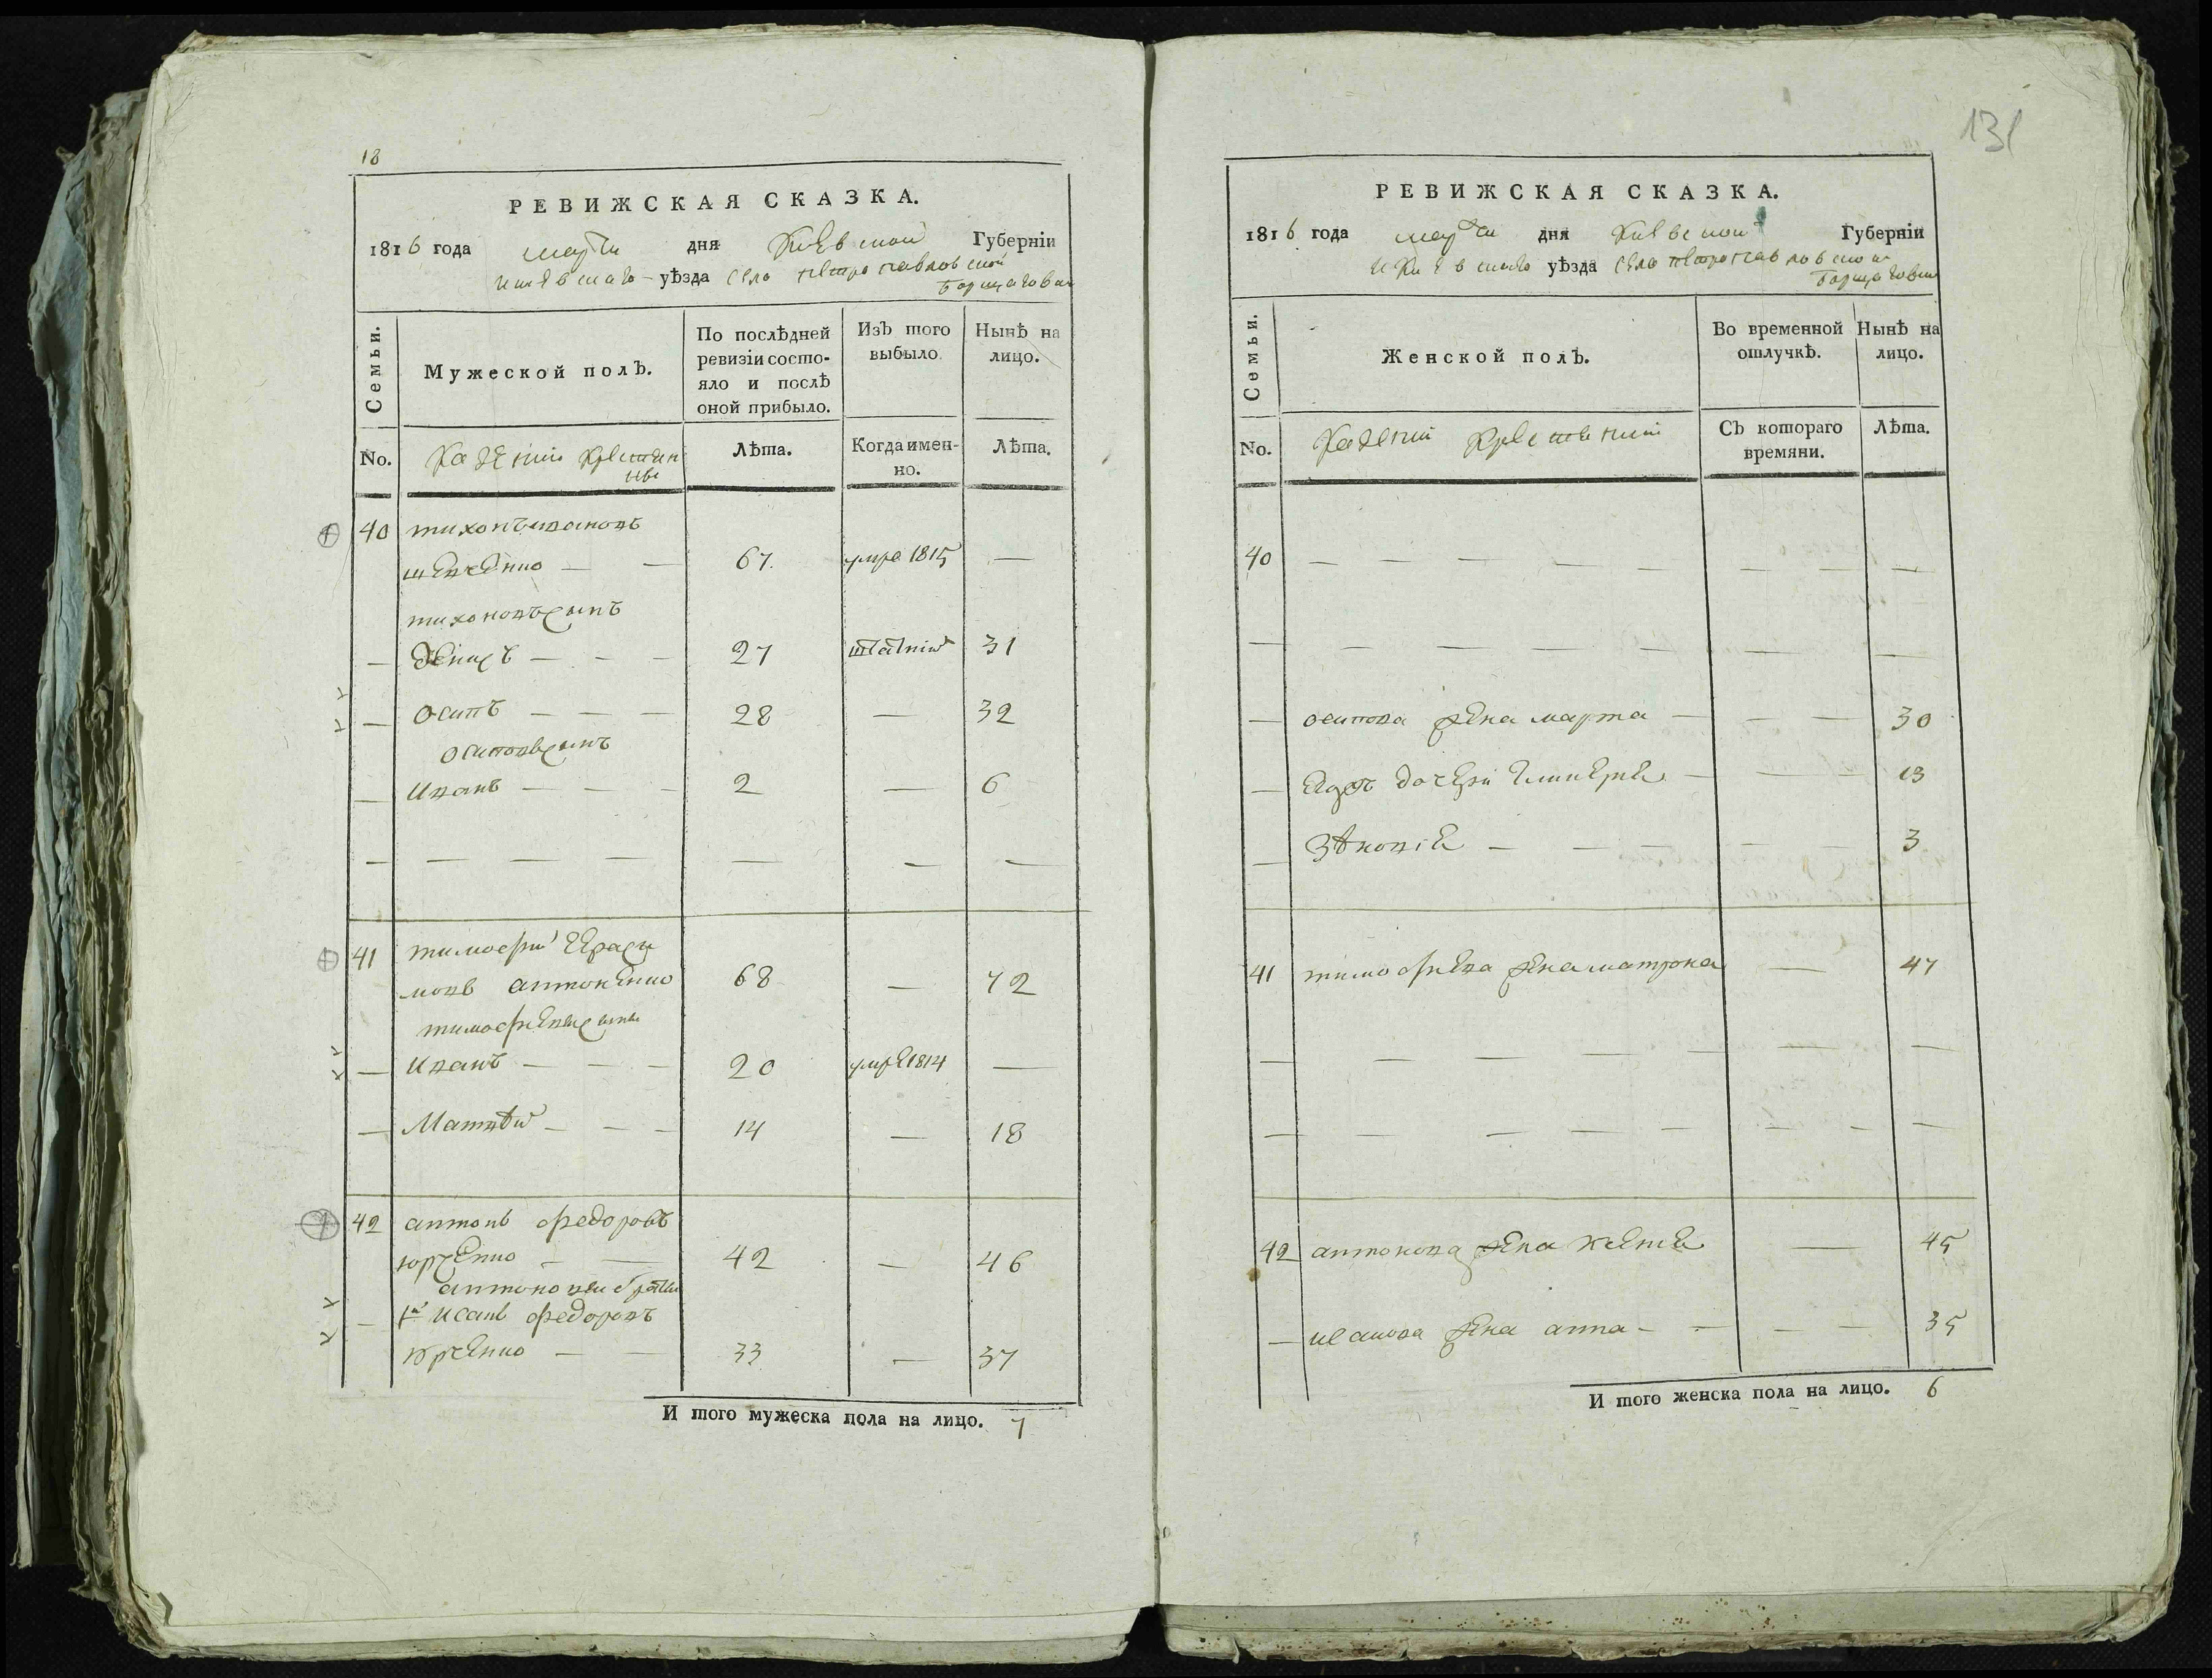 18
РЕВИЖСКАЯ СКАЗКА.
1816 года марта дня Киевской Губерніи
Киевскаго уѣзда села Петропавловской
Борщаговки
Семьи.
Мужеской полЪ.
По послѣдней ревизіи состояло и послѣ оной прибыло.
ИзЪ того выбыло
НынѢ на лицо.
No.
Казеніи крестяне
Лѣта.
Когда именно.
Лѣта.
40 тихонъ ивановъ
шевченко — — 67. умре 1815 —
тихоновъ сынъ
— денисъ — - - 27 31
— осипъ — — — 28 — 32
осиповъ сынъ
— иванъ — — — 2 — 6
— — — — — — —
41 тимофій гераси
мовъ антоненко 68 — 72
тимофеевы сыны
— иванъ — — — 20 умре 1814 —
— Матвѣй — — — 14 — 18
42 антонъ федоровъ
юрченко — — 42 — 46
антоновы братья
— 1й иванъ федоровъ
юрченко — — 33 — 37
И того мужеска пола на лицо. 7
131
РЕВИЖСКАЯ СКАЗКА.
1816 года марта дня Киевской Губерніи
Киевскаго уѣзда села Петропавловской
Борщаговки
Семьи.
Женской полЪ.
Во временной отлучкѣ.
НынѢ на лицо.
No.
Казеніи крестяніи
СЪ котораго времяни.
Лѣта.
40 — — — — — — — —
— — — — — — —
— осипова жена марта — — — 30
— дочери — — — 13
— Зѣновія — — — — 3
41 тимофѣева жена матрона — 47
— — — — — — —
— — — — — — — —
42 антонова жена — 45
— иванова жена анна — — — — 35
И того женска пола на лицо. 6